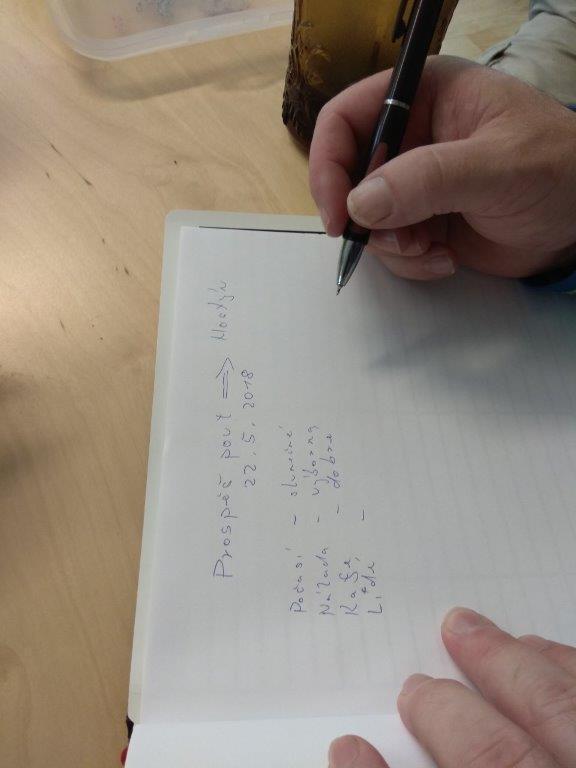 Prospěč pouť ⟹ Hostýn
22. 5. 2018
Počasí - slunečné
Nálada - výborná
Kafe - dobré
Lidé -